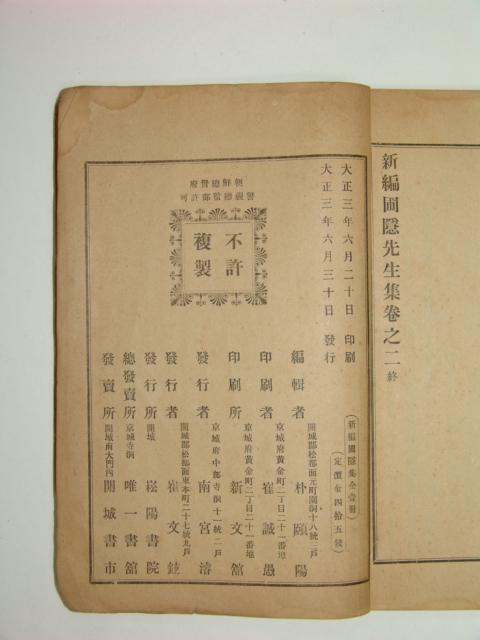 新編圃隱先生集卷之二終
大正三年六月二十日 印刷
大正三年六月三十日 發行
(新編圃隱集全壹冊)
(定價金四拾五錢)
朝鮮總督府
警視總監部許可
不許
複製
開城郡松都面元町開洞十八統二戶
編輯者 朴頤陽
京城府黃金町二丁目二十一番地
印刷者 崔誠愚
京城府黃金町二丁目二十一番地
印刷所 新文舘
京城府中部寺洞十一統二戶
發行者 南宮濬
開城郡松都面東本町二十七統九戶
發行者 崔文鉉
發行所 開城 崧陽書院
總發賣所 京城寺洞 唯一書舘
發賣所 開城南大門內 開城書市